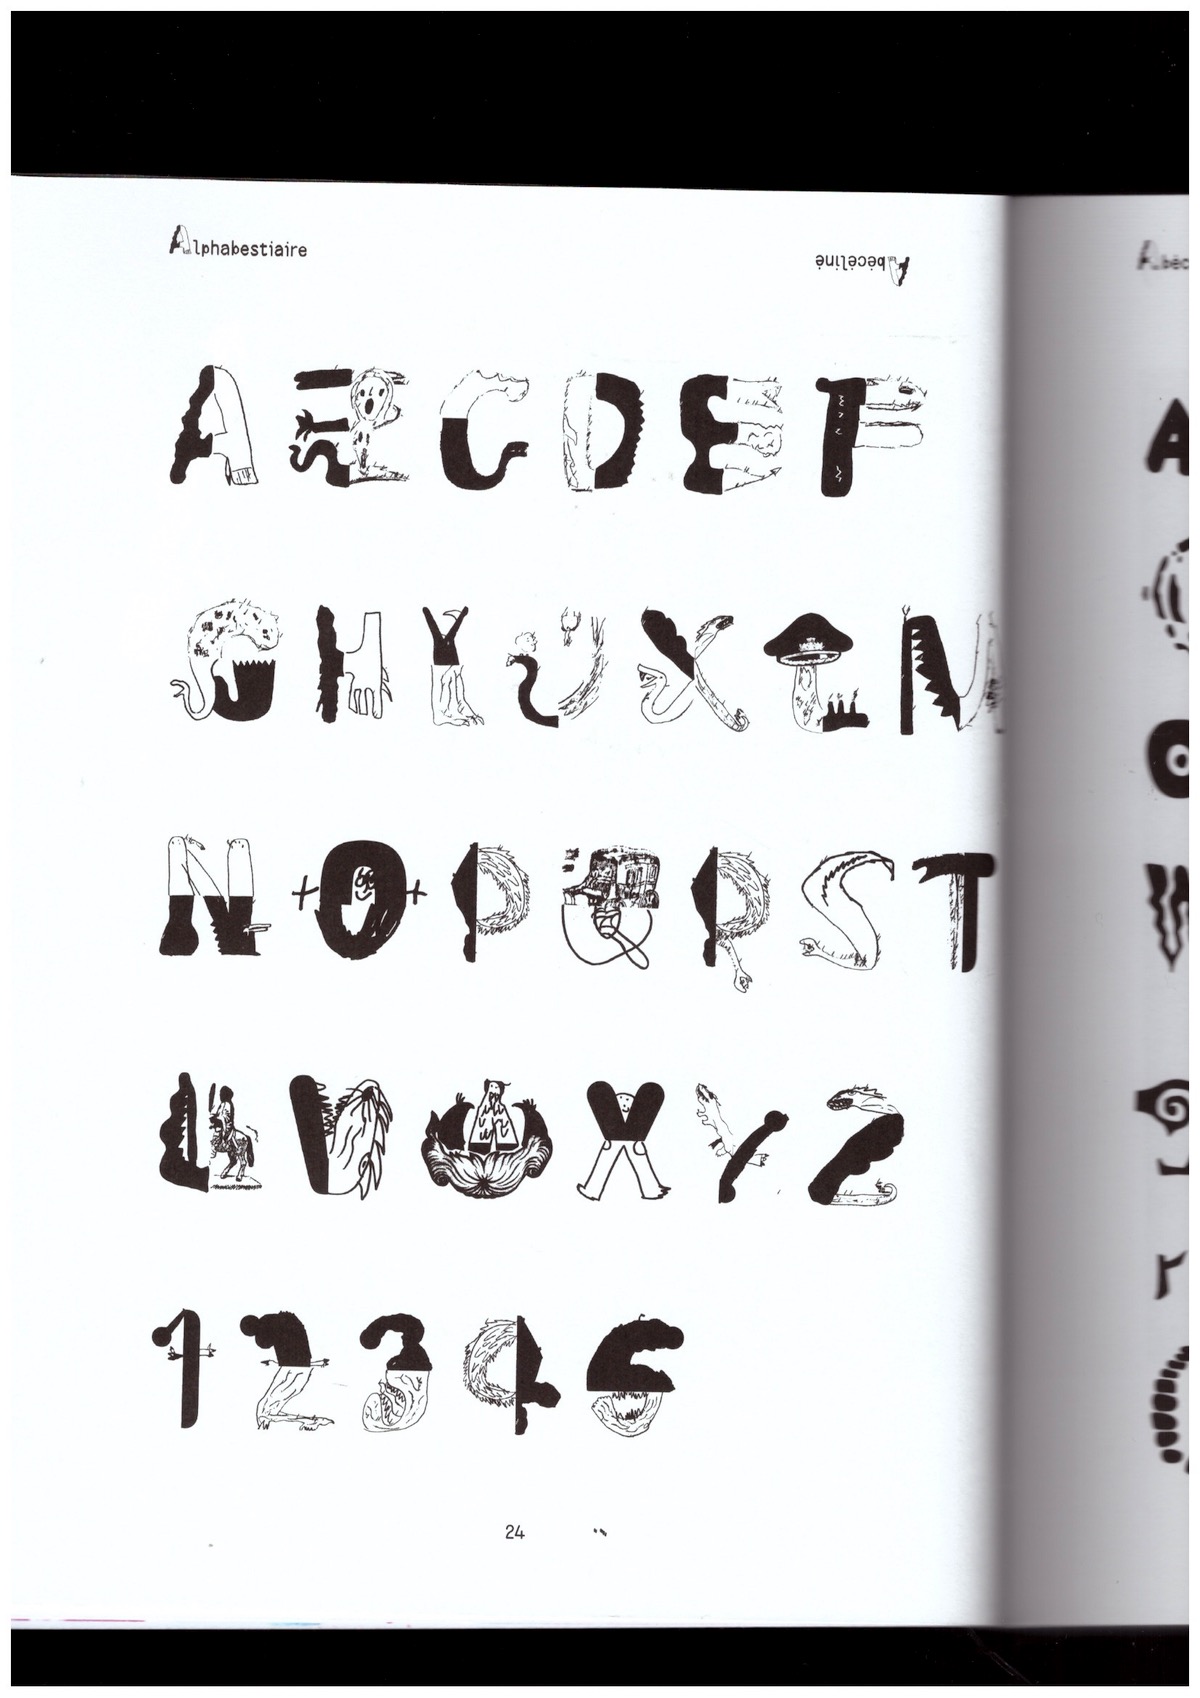 Alphabestiaire
Abėcėlinė
A B C D E F
G H I J K L M
N O P Q R S T
U V W X Y Z
1 2 3 4 5
24